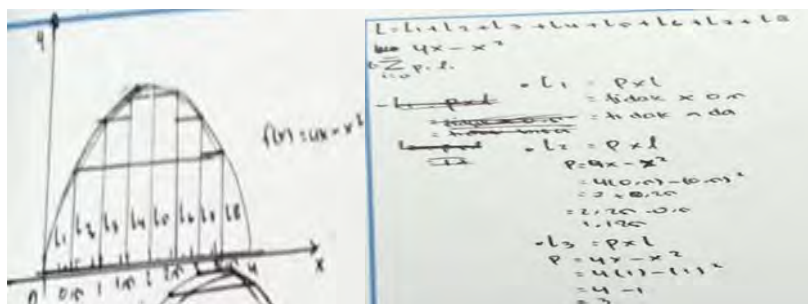 y
f(x) = 4x - x²
L1 L2 L3 L4 L5 L6 L7 L8
x
0 0,5 1 1,5 2 2,5 4
L = L1 + L2 + L3 + L4 + L5 + L6 + L7 + L8
4x - x²
• L1 = P x l
= tidak x 0,5
= tidak ada
• L2 = P x l
P = 4x - x²
= 4(0,5) - (0,5)²
= 2,25 - 0,5
1,125
• L3 = P x l
P = 4x - x²
= 4(1) - (1)²
= 4 - 1
= 3